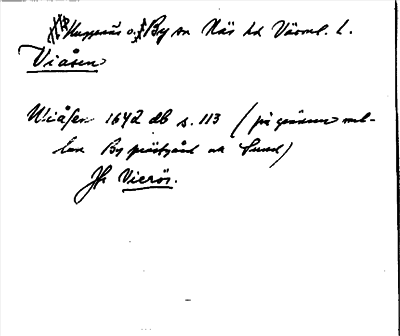 Huggenäs o. By sn Näs hd Värml. l.
Viåsen
Wiåsen 1642 db s. 113 (på gränsen mel-
lan By prästgård och Sund)
Jfr Vierös.